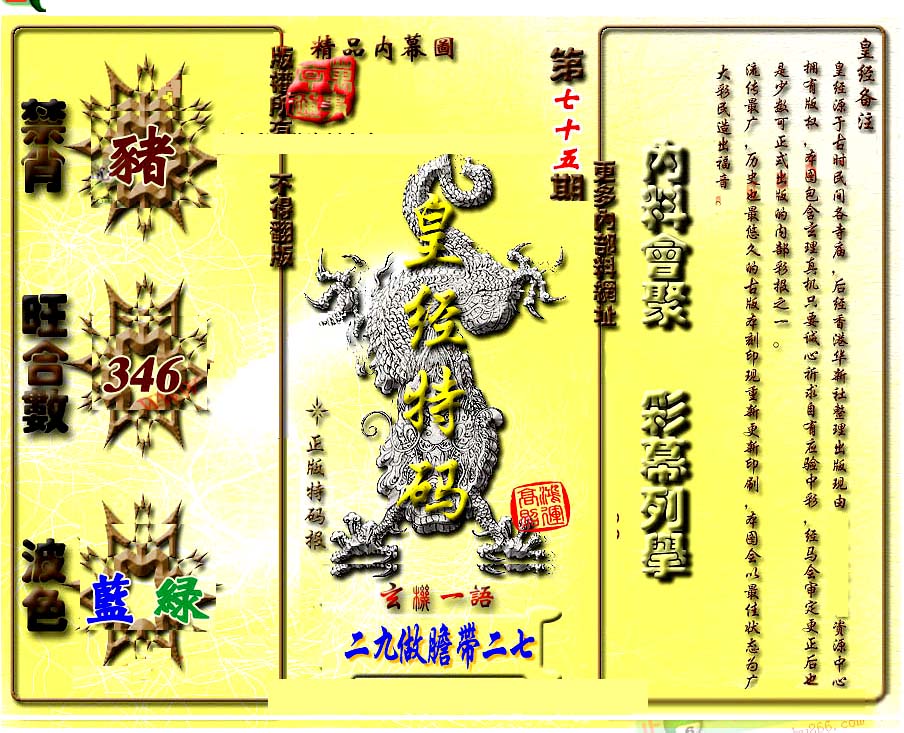 精品内幕圖
版權所有
不得翻版
禁肖
豬
旺合數
346
波色
藍 綠
皇经特码
正版特码报
鴻運
高照
玄機一語
二九做膽帶二七
第七十五期
更多內部料網址
内料會聚
彩幕列舉
皇经备注
皇经源于古时民间各寺庙，后经香港华新社整理出版现由 资源中心
拥有版权，本图包含玄理真机只要诚心祈求自有应验中彩，经马会审定更正后也
是少数可正式出版的内部彩报之一。
流传最广，历史也最悠久的古版本刻印现重新更新印刷，本图会以最佳状态为广
大彩民造出福音。